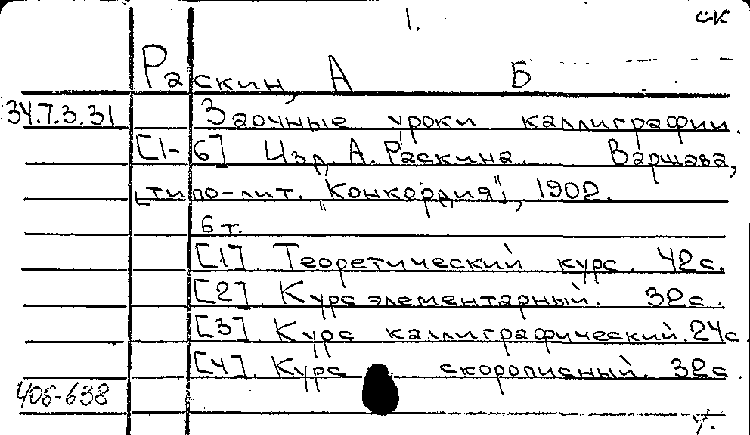 1. СК
Раскин, А Б
34.7.3.31 Заочные уроки каллиграфии.
[1-6] Изд. А. Раскина. Варшава,
[типо-лит. "Конкордия"], 1902.
6 т.
[1] Теоретический курс. 42с.
[2]. Курс элементарный. 32с.
[3]. Курс каллиграфический. 24с
[4]. Курс скорописный. 32с
406-638